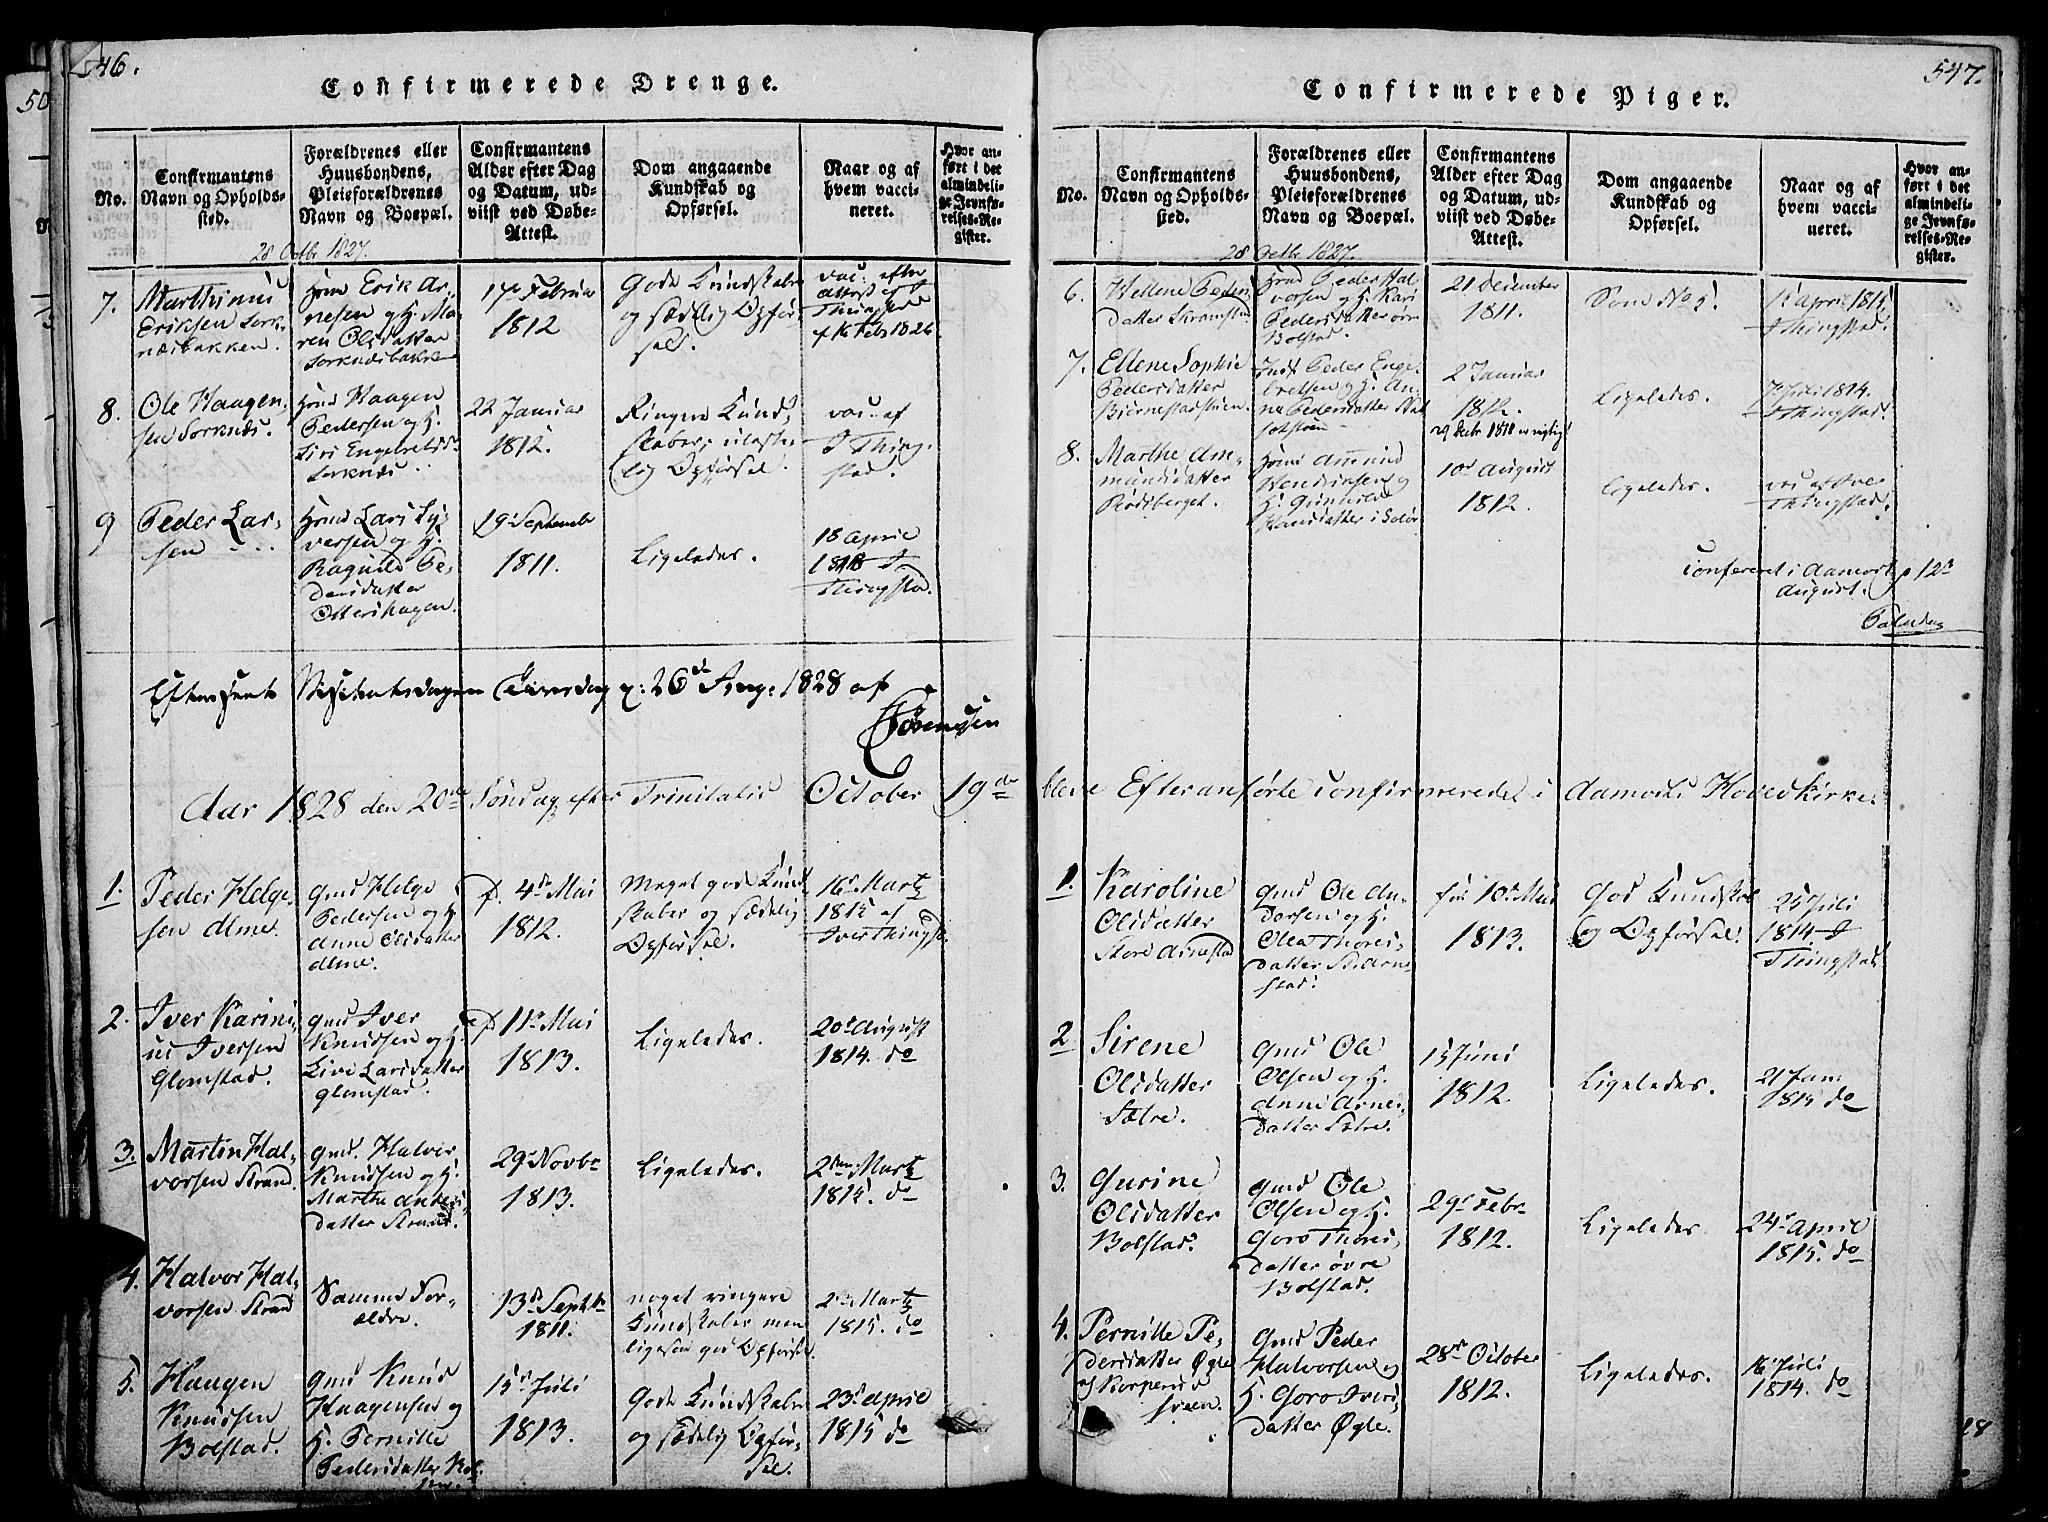 546.
Confirmerede Drenge.
No.
Confirmantens
Navn og Opholds-
sted.
Forældrenes eller
Huusbondens,
Pleieforældrenes
Navn og Boepæl.
Confirmantens
Alder efter Dag
og Datum, ud-
viist ved Døbe-
Attest.
Dom angaaende
Kundskab og
Opførsel.
Naar og af
hvem vacci-
neret.
Hvor an-
ført i det
almindeli-
ge Jevnfø-
relses-Re-
gister.
28 Octbr 1827.
7.
Marthinus
Eriksen Sork-
næsbakken.
Erik Ar-
nesen og H. Ma-
ren Olsdatter
Sorknæsbakke
17 Februar
1812
Gode Kundskaber
og sædelig Opfør-
sel.
vac. efter
Attest af
Thingstad
f 16 Febr 1826
8.
Ole Haagen-
sen Sorknæs.
Haagen
Pedersen og H.
Siri Engebretsd.
Sorknæs
22 Januar
1812.
Ringere Kund-
skaber,
Opførsel.
vac. af
I Thing-
stad.
9
Peder Lar-
sen
Lars Sy-
versen og H.
Ragnild Pe-
dersdatter
Ottershagen.
19 September
1811.
Ligeledes.
18 April
I
Thingstad.
Efterseet Visitatsdagen Tirsdag d: 26de Aug: 1828 af
Sörenssen
Aar 1828 den 20de Søndag efter Trinitatis October 19de
1.
Peder Helge-
sen Alme.
Gmd Helge
Pedersen og H.
Anne Olsdatter
Alme.
f. 4de Mai
1812.
Meget gode Kund-
skaber og sædelig
Opførsel.
16 Marts
1815 af
Iver Thingst.
2.
Iver Karini-
us Iversen
Glomstad.
Gmd Iver
Knudsen og H.
Livi Larsdatter
Glomstad.
f 11 Mai
1813.
Ligeledes.
20 August
1814. do
3.
Martin Hal-
vorsen Strand.
Gmd. Halvor
Knudsen og H.
Marthe Anders-
datter Strand.
29 Novbr
1813.
Ligeledes.
2den Marts
1815. do
4.
Halvor Hal-
vorsen Strand
Samme For-
ældre.
13de Septbr
1811.
noget ringere
Kundskaber men
ligesaa god Opførsel.
2den Marts
1815. do
5.
Haagen
Knudsen
Bolstad.
Gmd Knud
Haagensen og
H. Pernille
Pedersdatter Bol-
stad.
15 Juli
1813.
Gode Kundskaber
og sædelig Opfør-
sel.
23 April
1815 do
547.
Confirmerede Piger.
No.
Confirmantens
Navn og Opholds-
sted.
Forældrenes eller
Huusbondens,
Pleieforældrenes
Navn og Boepæl.
Confirmantens
Alder efter Dag
og Datum, ud-
viist ved Døbe-
Attest.
Dom angaaende
Kundskab og
Opførsel.
Naar og af
hvem vacci-
neret.
Hvor an-
ført i det
almindeli-
ge Jevnfø-
relses-Re-
gister.
28 Octbr 1827.
6.
Hellene Peders-
datter Skramstad
Peder Hal-
vorsen og H. Kari
Pedersdatter Øvre
Bolstad.
21 December
1811.
Som No 5.
April 1815
I Thingstad.
7.
Ellene Sophie
Pedersdatter
Peder Enge-
bretsen og H. An-
ne Pedersdatter
2 Januar
1812.
Ligeledes.
Juli 1814.
I Thingstad.
8.
Marthe Am-
mundsdatter
Rødsberget.
Ammund
Hendriksen og
H. Gunnild
Hansdatter i Solør
10 August
1812.
Ligeledes.
vac af Iver
Thingstad.
Confereret i Aamodt d 12
August.
bleve Efteranførte confirmerede i Aamodts Hovedkirke.
1.
Karoline
Olsdatter
Store Arnestad
Gmd Ole An-
dersen og H.
Olea Thores-
datter St. Arne-
stad.
før 10 Mai
1813.
God Kundskab
og Opførsel.
25 Juli
1814. I
Thingstad.
2
Sirene
Olsdatter
Sætre.
Gmd Ole
Olsen og H.
Anne Arnes-
datter Sætre.
15 Juni
1812.
Ligeledes.
21 Jan.
1815 do
3.
Gurine
Olsdatter
Bolstad.
Gmd Ole
Olsen og H.
Goro Thores-
datter Øvre
Bolstad.
29 Febr
1812.
Ligeledes.
24 April
1815. do
4.
Pernille Pe-
dersdatter Øgle
Gmd Peder
Halvorsen og
H. Goro Ivers-
datter Øgle.
28de October
1812.
Ligeledes.
16 Juli
1814. do